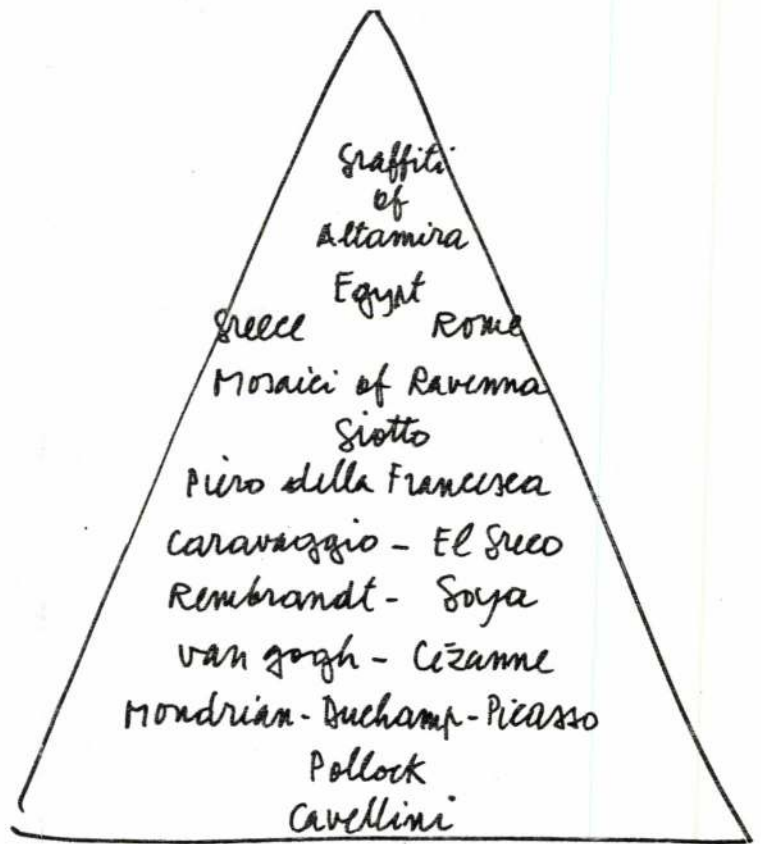 Graffiti
of
Altamira
Egypt
Greece Rome
Mosaici of Ravenna
Giotto
Piero della Francesca
Caravaggio - El Greco
Rembrandt - Goya
van gogh - Cézanne
Mondrian - Duchamp - Picasso
Pollock
Cavellini